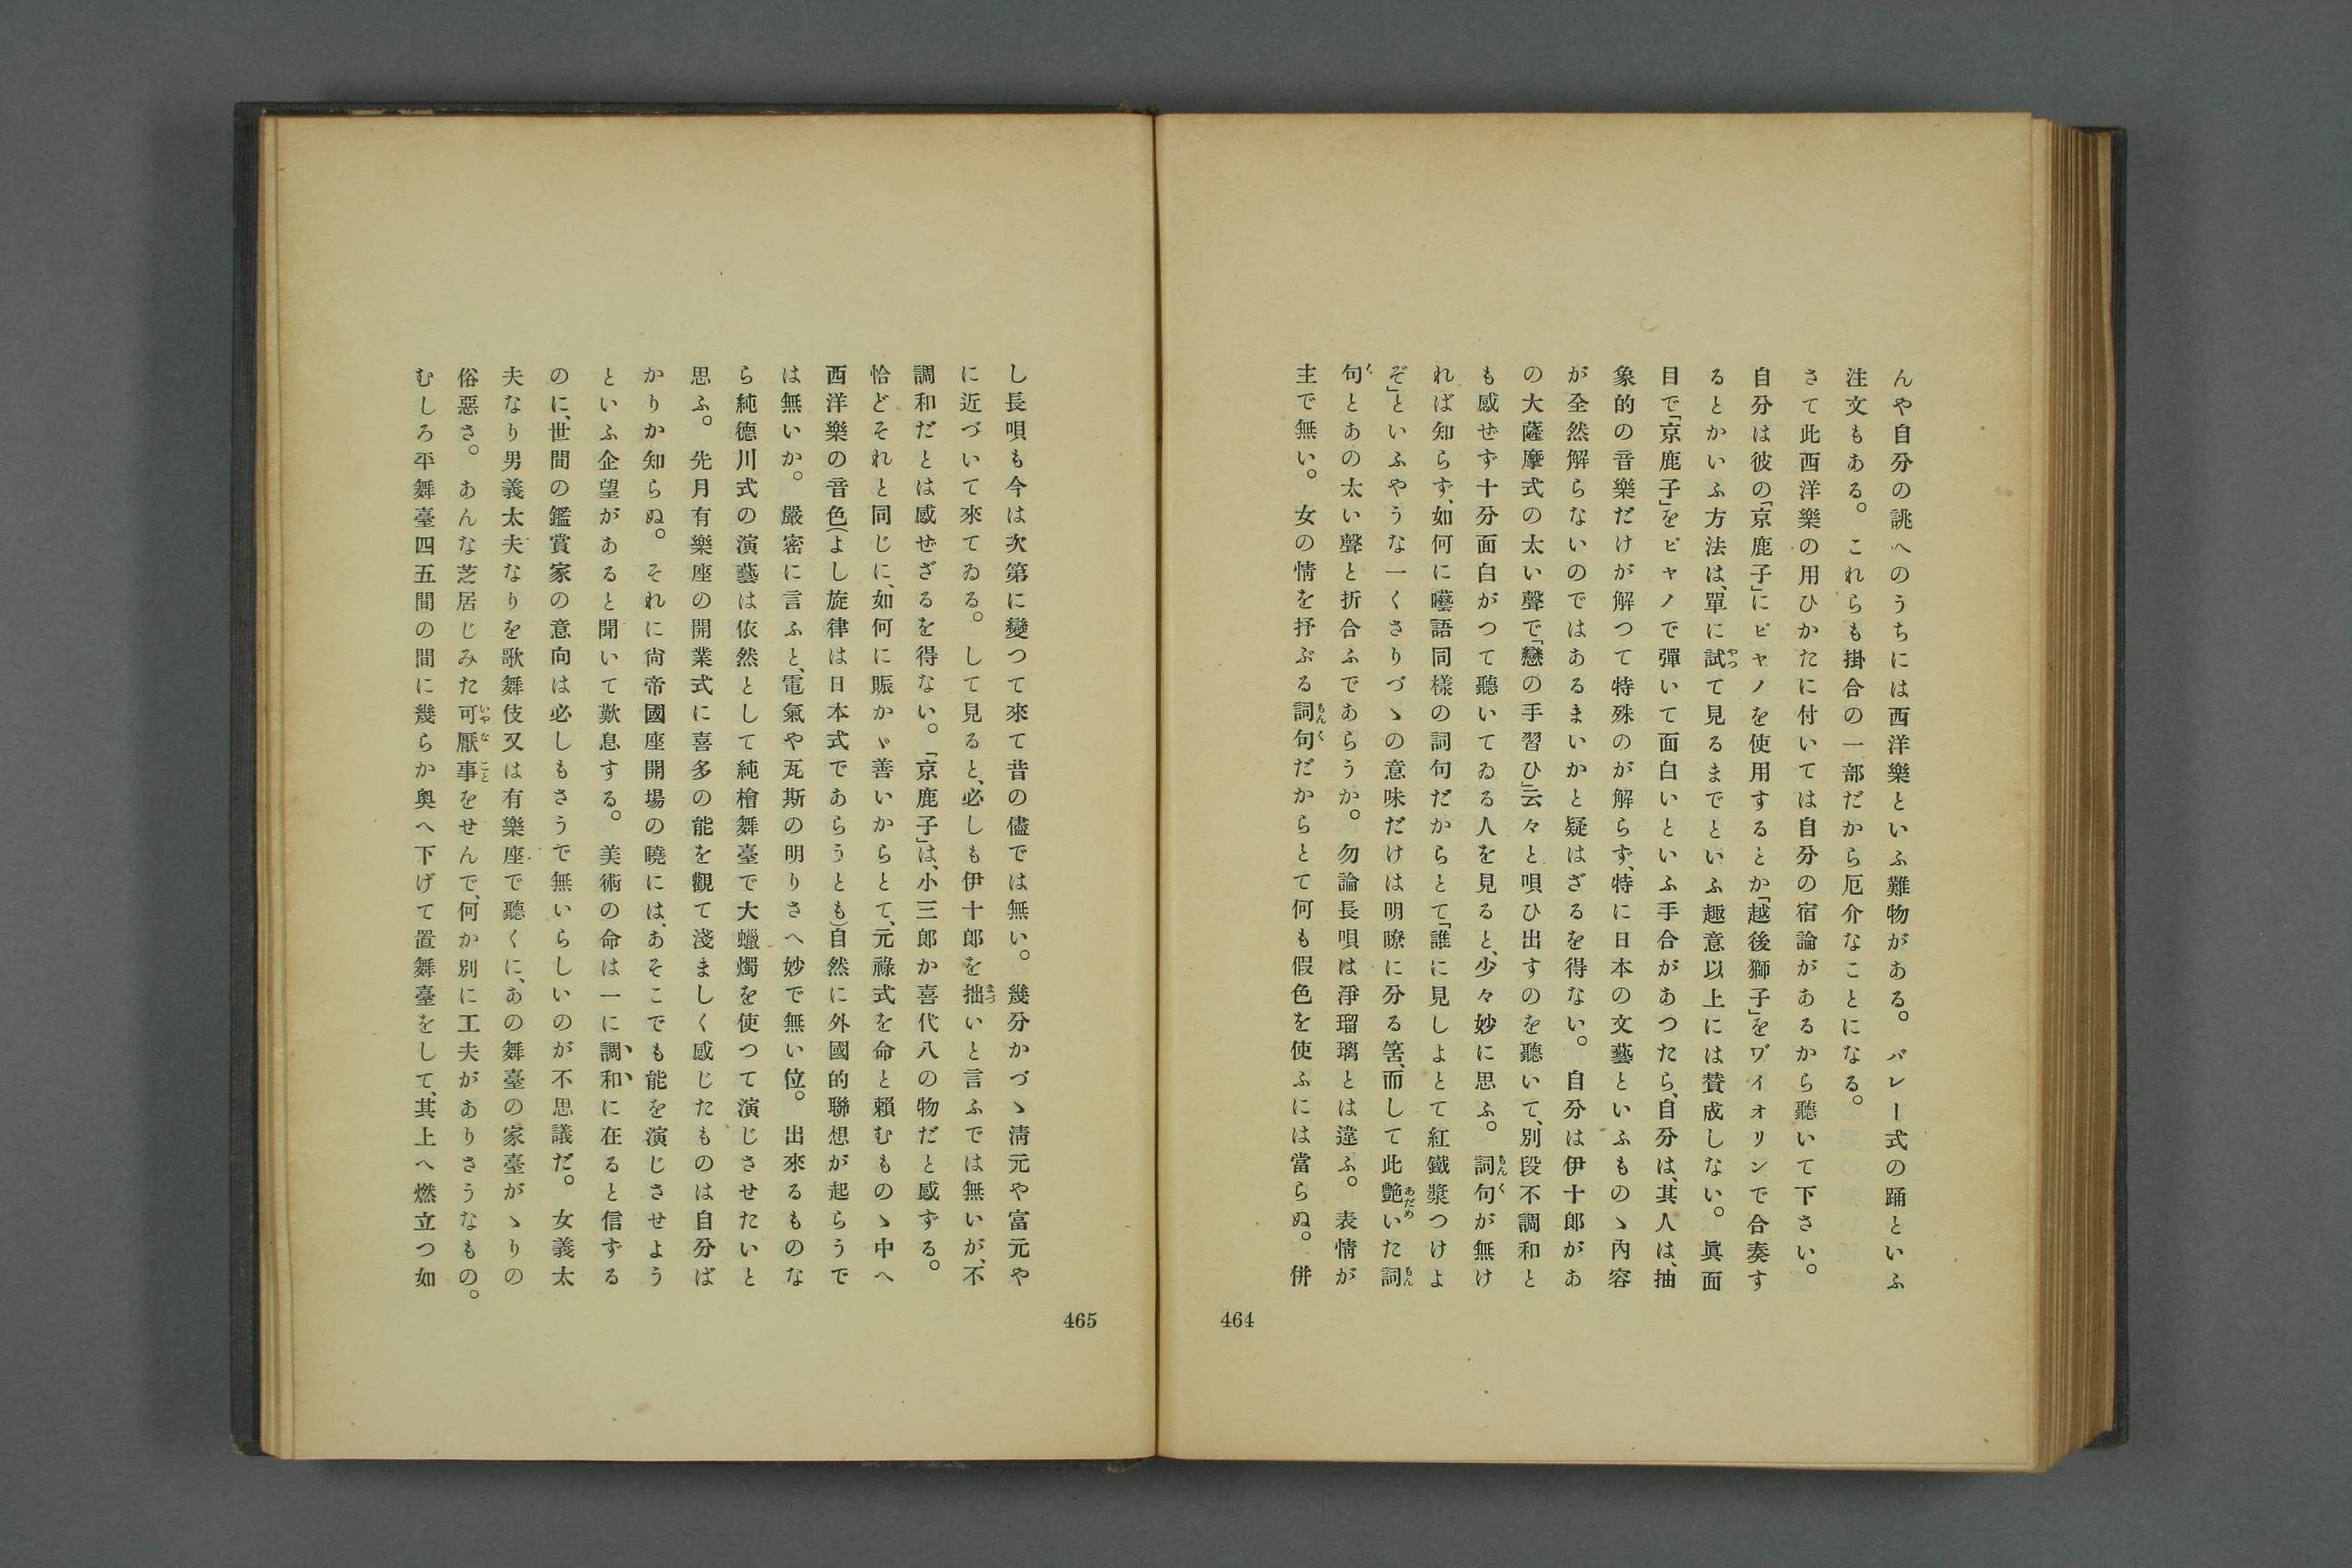 んや自分の誂へのうちには西洋樂といふ難物がある。バレー式の踊といふ
注文もある。これらも掛合の一部だから厄介なことになる。
さて此西洋樂の用ひかたに付いては自分の宿論があるから聽いて下さい。
自分は彼の「京鹿子」にピヤノを使用するとか「越後獅子」をヷイオリンで合奏す
るとかいふ方法は、單に試て見るまでといふ趣意以上には賛成しない。眞面
目で「京鹿子」をピヤノで彈いて面白いといふ手合があつたら、自分は、其人は、抽
象的の音樂だけが解つて特殊のが解らず、特に日本の文藝といふものゝ內容
が全然解らないのではあるまいかと疑はざるを得ない。自分は伊十郎があ
の大薩摩式の太い聲で「戀の手習ひ」云々と唄ひ出すのを聽いて、別段不調和と
も感せず十分面白がつて聽いてゐる人を見ると、少々妙に思ふ。詞句が無け
れば知らず、如何に囈語同樣の詞句だからとて「誰に見しよとて紅鐵漿つけよ
ぞ」といふやうな一くさりづゝの意味だけは明瞭に分る筈、而して此艶いた詞
句とあの太い聲と折合ふであらうか。勿論長唄は淨瑠璃とは違ふ。表情が
主で無い。女の情を抒ぶる詞句だからとて何も假色を使ふには當らぬ。併
464
し長唄も今は次第に變つて來て昔の儘では無い。幾分かづゝ淸元や富元や
に近づいて來てゐる。して見ると、必しも伊十郎を拙いと言ふでは無いが、不
調和だとは感せざるを得ない。「京鹿子」は、小三郎か喜代八の物だと感ずる。
恰どそれと同じに、如何に賑かゞ善いからとて、元祿式を命と賴むものゝ中へ
西洋樂の音色(よし旋律は日本式であらうとも)自然に外國的聯想が起らうで
は無いか。嚴密に言ふと、電氣や瓦斯の明りさへ妙で無い位。出來るものな
ら純德川式の演藝は依然として純檜舞臺で大蠟燭を使つて演じさせたいと
思ふ。先月有樂座の開業式に喜多の能を觀て淺ましく感じたものは自分ば
かりか知らぬ。それに尙帝國座開場の曉には、あそこでも能を演じさせよう
といふ企望があると聞いて歎息する。美術の命は一に調和に在ると信ずる
のに、世間の鑑賞家の意向は必しもさうで無いらしいのが不思議だ。女義太
夫なり男義太夫なりを歌舞伎又は有樂座で聽くに、あの舞臺の家臺がゝりの
俗惡さ。あんな芝居じみた可厭事をせんで、何か別に工夫がありさうなもの。
むしろ平舞臺四五間の間に幾らか奧へ下げて置舞臺をして、其上へ燃立つ如
465